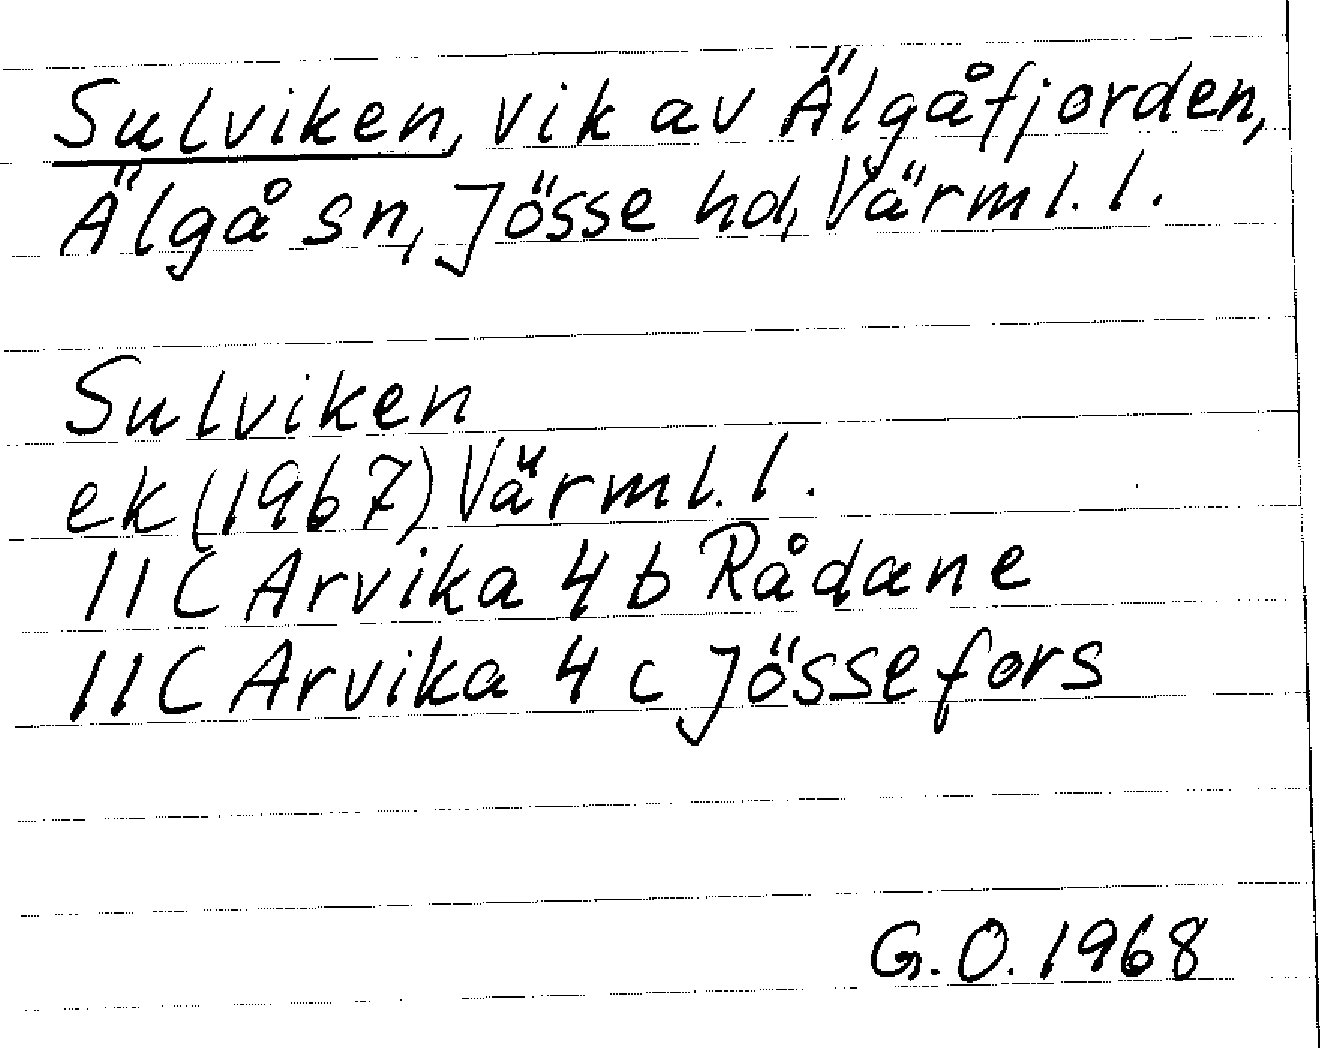 Sulviken, vik av Älgåfjorden,
Älgå sn, Jösse hd, Värml. l.
Sulviken
ek (1967) Värml. l.
11C Arvika 4b Rådane
11C Arvika 4c Jössefors
G. O. 1968